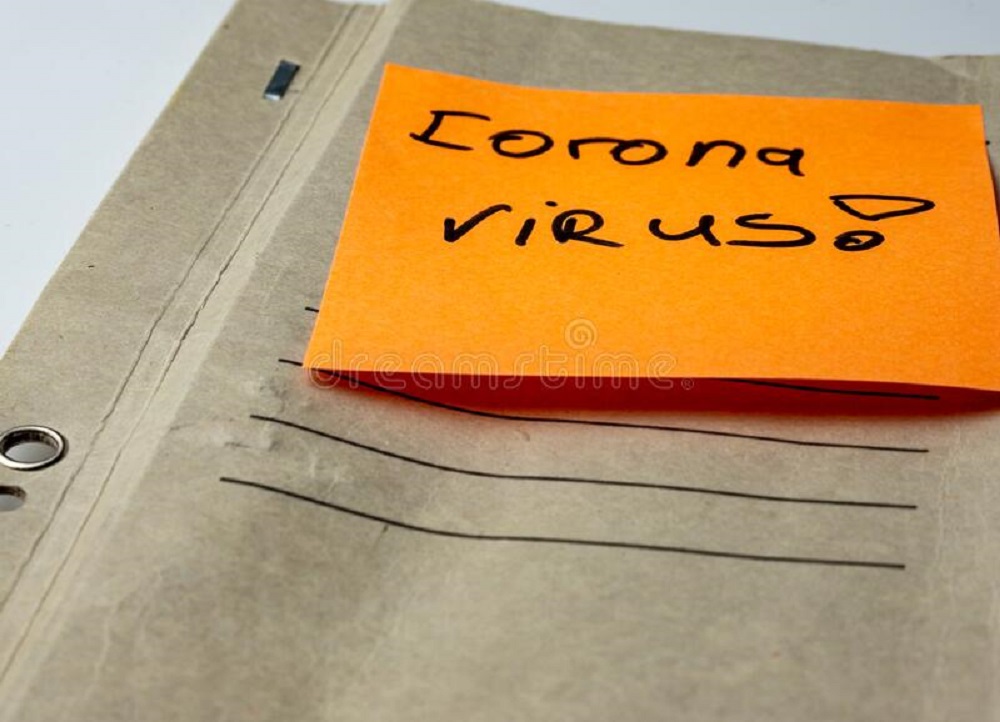 Corona
viRus!
dreamstime.com